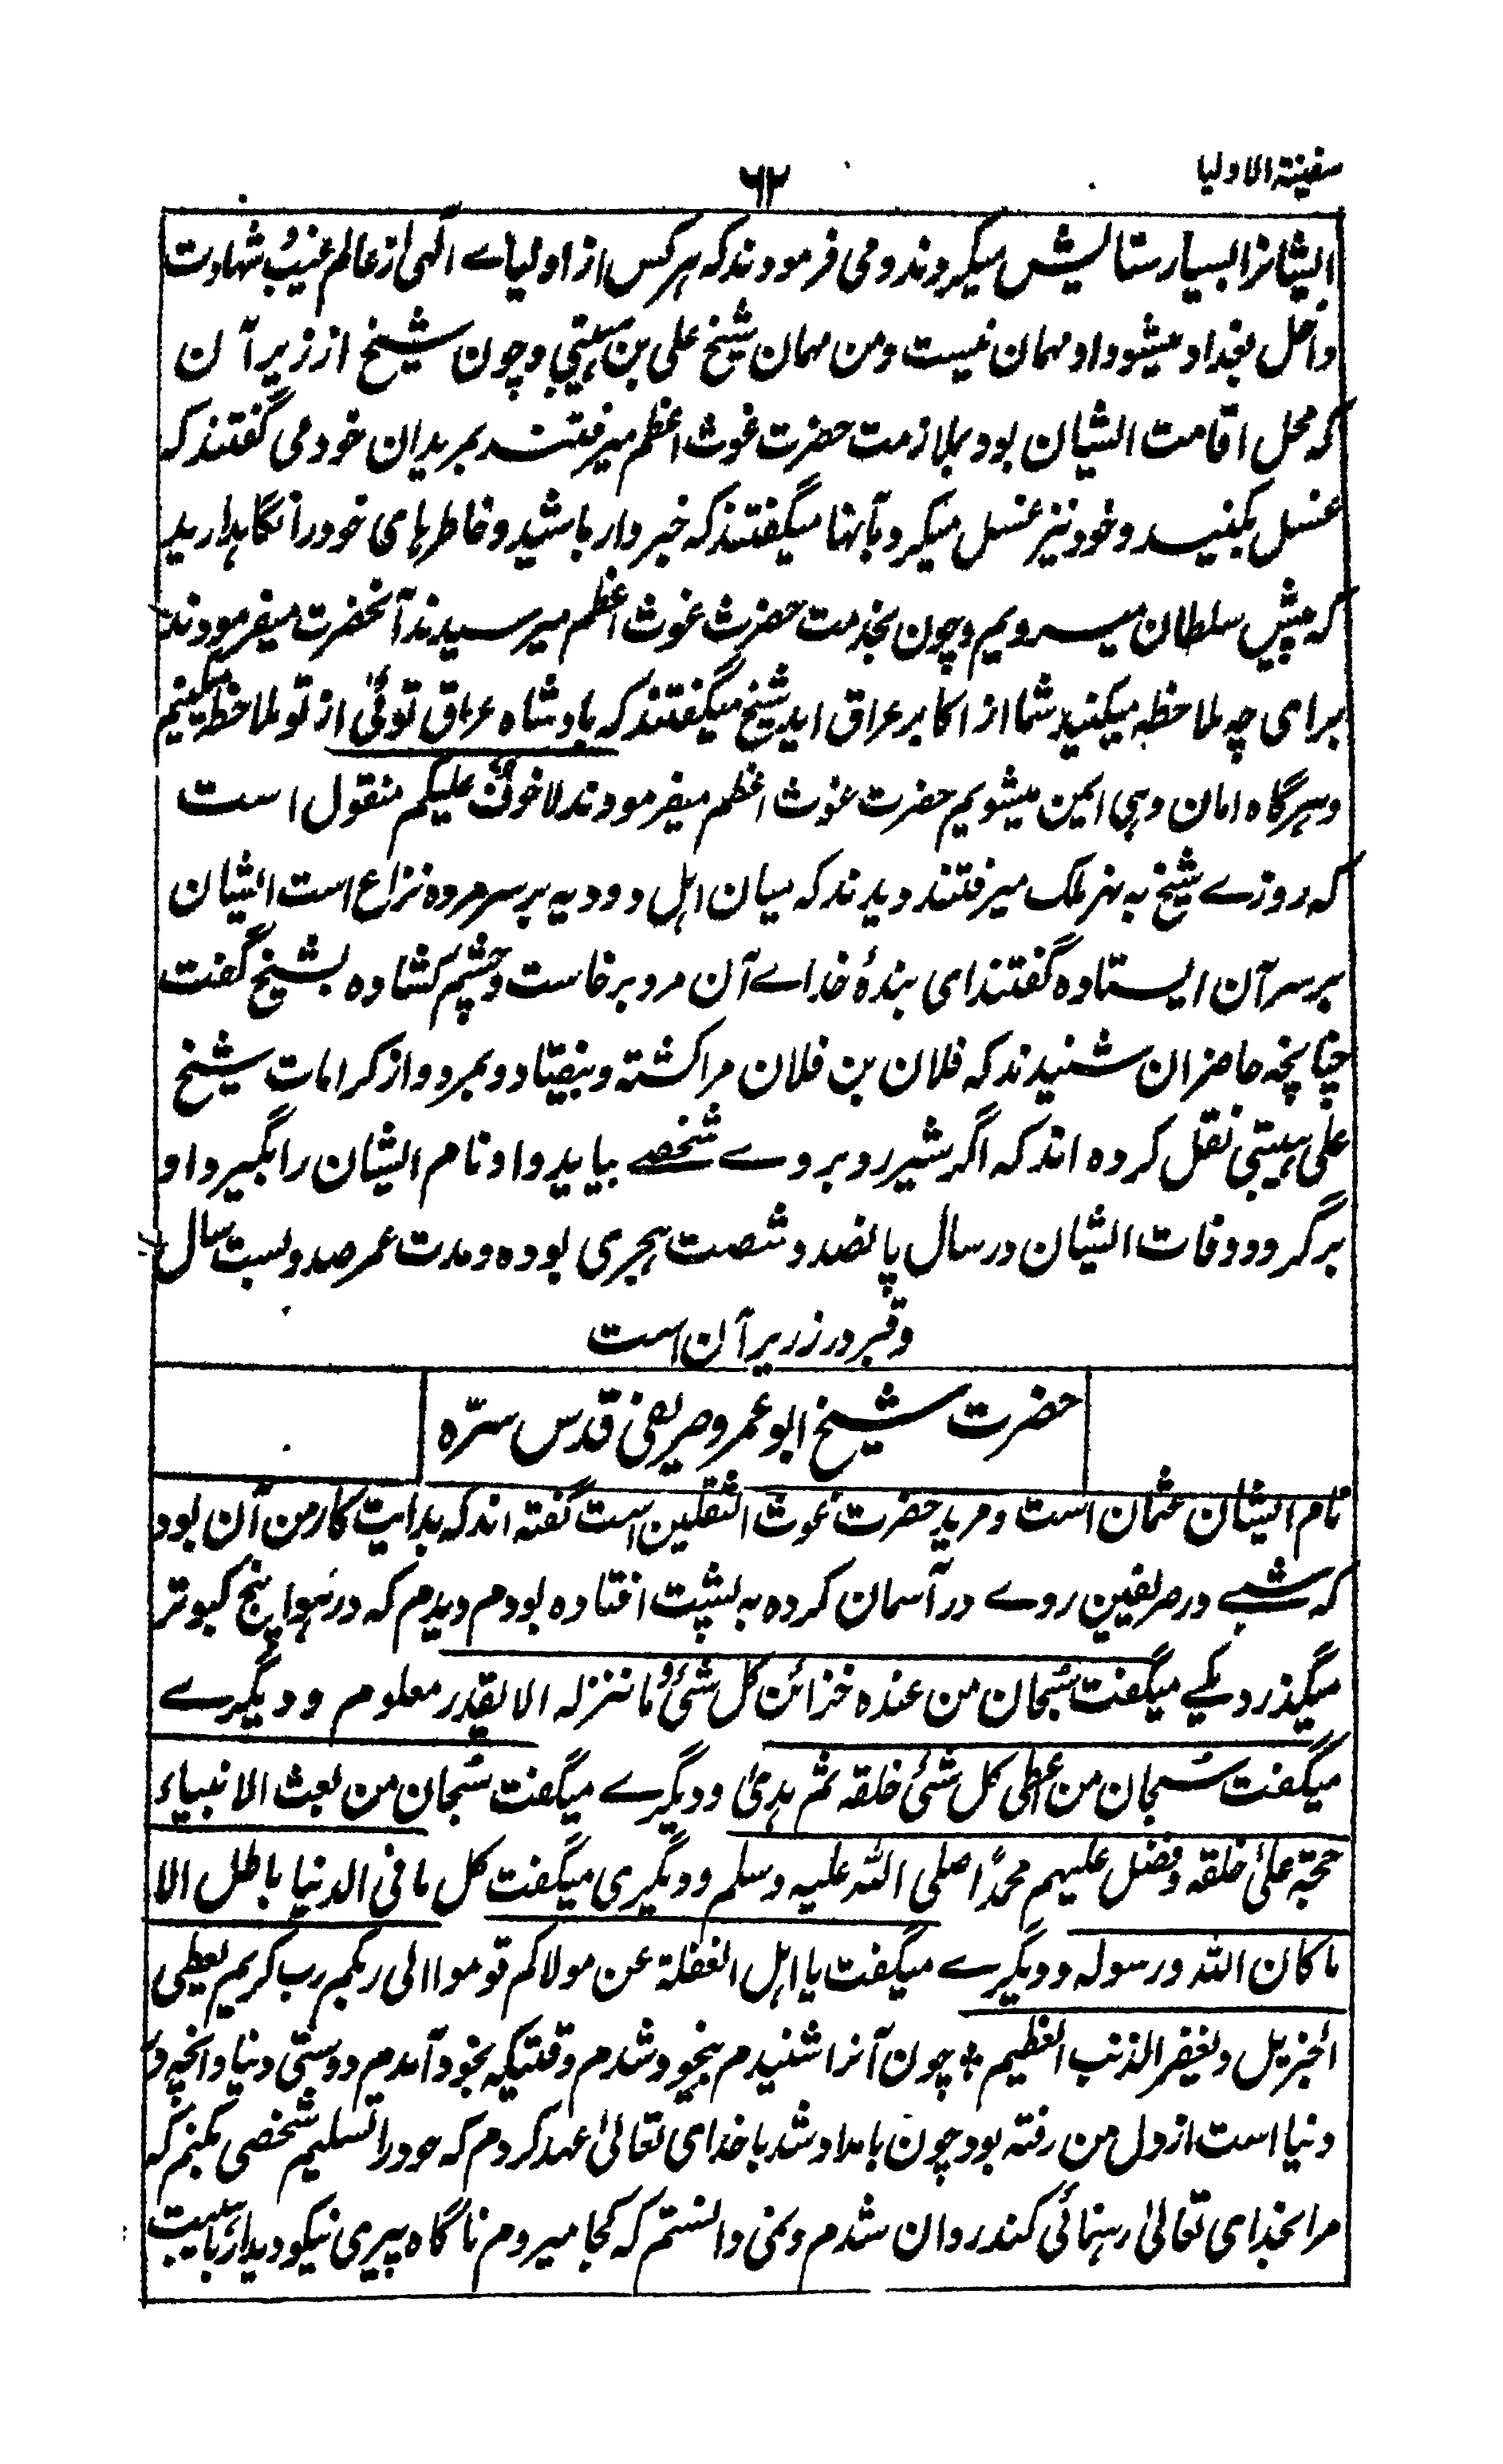 سفینة الاولیا
۶۲
ایشانرا بسیار ستایش میکردند و می فرمودند که هر کس از اولیاے الٰہی از عالم غیب شہادت
داخل بغداد میشود او مہمان نیست و من مہمان شیخ علی بن ہیتی و چون شیخ از زیرآن
که محل اقامت ایشان بود بملازمت حضرت غوث اعظم میرفتند بمریدان خود می گفتند که
غسل بکنید و خود نیز غسل میکرد و بآنها میگفتند که خبردار باشید و خاطرهای خود را نگاہدارید
که پیش سلطان میرویم و چون بخدمت حضرت غوث اعظم میرسیدند آنحضرت میفرمودند
برای چه ملاحظه میکنید شما از اکابر عراق اید شیخ میگفتند که بادشاه عراق توئی از تو ملاحظه میکنیم
و ہرگاه امان دہی ایمن میشویم حضرت غوث اعظم میفرمودند لا خوف علیکم منقول است
که روزے شیخ به نہر ملک میرفتند دیدند که میان اہل دو دیه بر سر مرده نزاع است ایشان
بر سر آن ایستاده گفتند ای بندۂ خداے آن مرد برخاست و چشم کشاده بشیخ گفت
چنانچه حاضران شنیدند که فلان بن فلان مرا کشته و بیفتاد و بمرد و از کرامات شیخ
علی ہیتی نقل کرده اند که اگر شیر رو بروے شخصے بیاید و او نام ایشان را بگیرد او
برگردد و وفات ایشان در سال پانصد و شصت ہجری بوده و مدت عمر صد و بست سال
و قبر در زریرآن است
حضرت شیخ ابو عمرو صریفی قدس سرّه
نام ایشان عثمان است و مرید حضرت غوث الثقلین است گفته اند که بدایت کار من آن بود
که شبے در صریفین روے در آسمان کرده به پشت افتاده بودم دیدم که در ہوا پنج کبوتر
میگذرد یکے میگفت سُبحان من عنده خزائن کل شئ و ما ننزله الا بقدر معلوم و دیگرے
میگفت سُبحان من عطی کل شئ خلقه ثم ہدیٰ و دیگرے میگفت سُبحان من بعث الانبیاء
حجة علیٰ خلقه و فضل علیہم محمداً صلی الله علیه و سلم و دیگری میگفت کل ما فی الدنیا باطل الا
ما کان الله و رسوله و دیگرے میگفت یا اہل الغفلة عن مولاکم قوموا الی ربکم رب کریم یعطی
الجزیل و یغفر الذنب العظیم * چون آنرا شنیدم بیخود شدم وقتیکه بخود آمدم دوستی دنیا و انچه در
دنیا است از دل من رفته بود چون بامداد شد با خدای تعالیٰ عہد کردم که خود را تسلیم شخصی بکنم که
مرا بخدای تعالیٰ رہنمائی کند روان شدم و نمی دانستم که کجا میروم ناگاه پیری نیکو دیدار با ہیبت